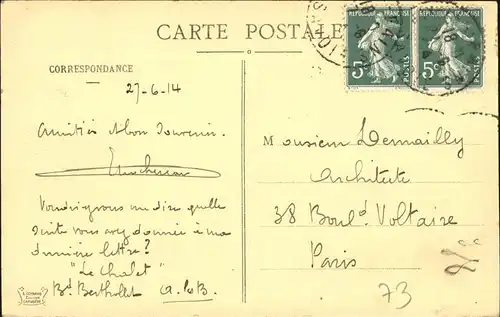 CARTE POSTALE
CORRESPONDANCE
27-6-14
Amitiés & bon souvenir.
Voudriez-vous me dire quelle
suite vous avez donnée à ma
dernière lettre?
"Le Chalet"
Bd Berthollet A.l.B.
REPUBLIQUE FRANÇAISE
5c
POSTES
REPUBLIQUE FRANÇAISE
5c
POSTES
Monsieur Demailly
Architecte
38 Boul.d Voltaire
Paris
73